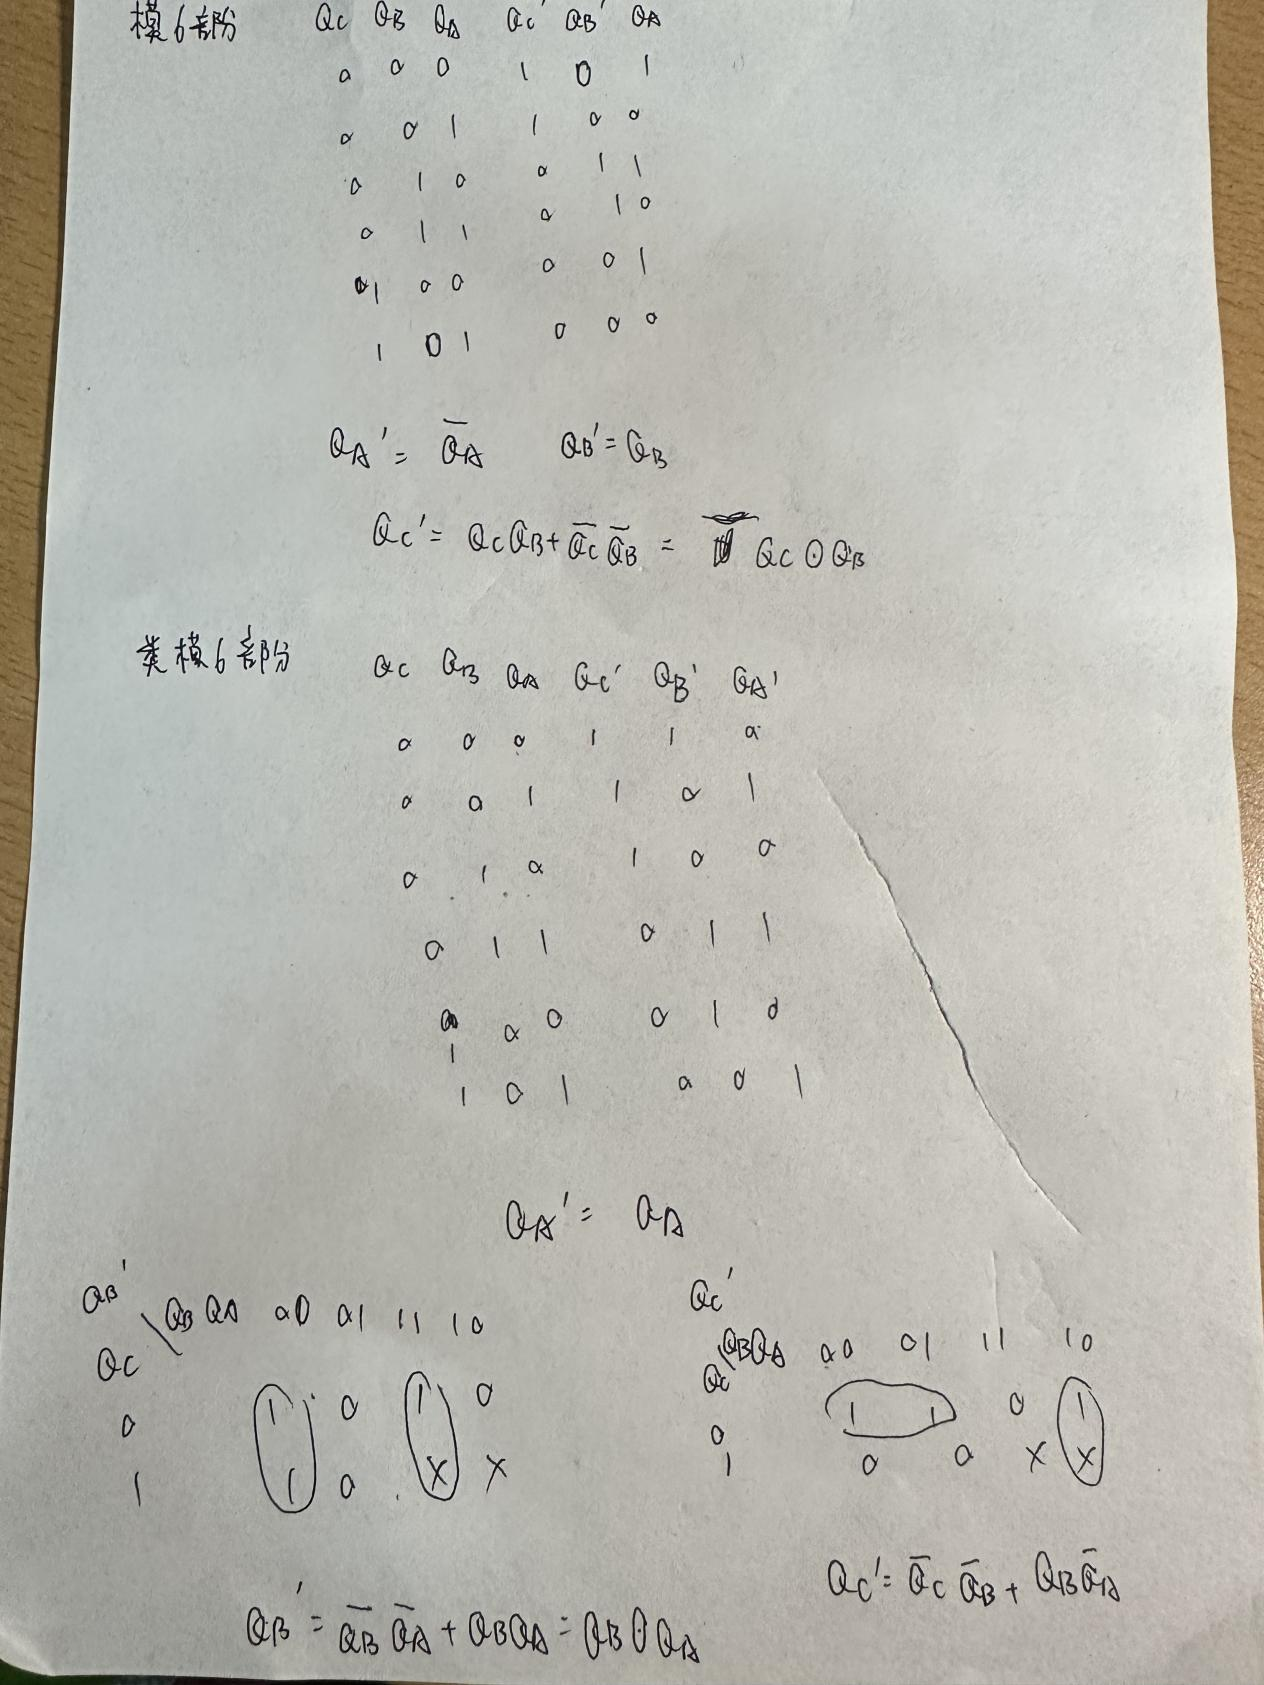 模6部份 QC QB QA QC' QB' QA
0 0 0 1 0 1
0 0 1 1 0 0
0 1 0 0 1 1
0 1 1 0 1 0
1 0 0 0 0 1
1 0 1 0 0 0
QA' = Q̅A̅ QB' = QB
QC' = QCQB + Q̅C̅ Q̅B̅ = QC⊙QB
类模6部份 QC QB QA QC' QB' QA'
0 0 0 1 1 0
0 0 1 1 0 1
0 1 0 1 0 0
0 1 1 0 1 1
1 0 0 0 1 0
1 0 1 0 0 1
QA' = QA
QB'
QC \ QBQA 00 01 11 10
0 1 0 1 0
1 1 0 X X
QB' = Q̅B̅ Q̅A̅ + QBQA = QB⊙QA
QC'
QC \ QBQA 00 01 11 10
0 1 1 0 1
1 0 0 X X
QC' = Q̅C̅ Q̅B̅ + QBQ̅A̅